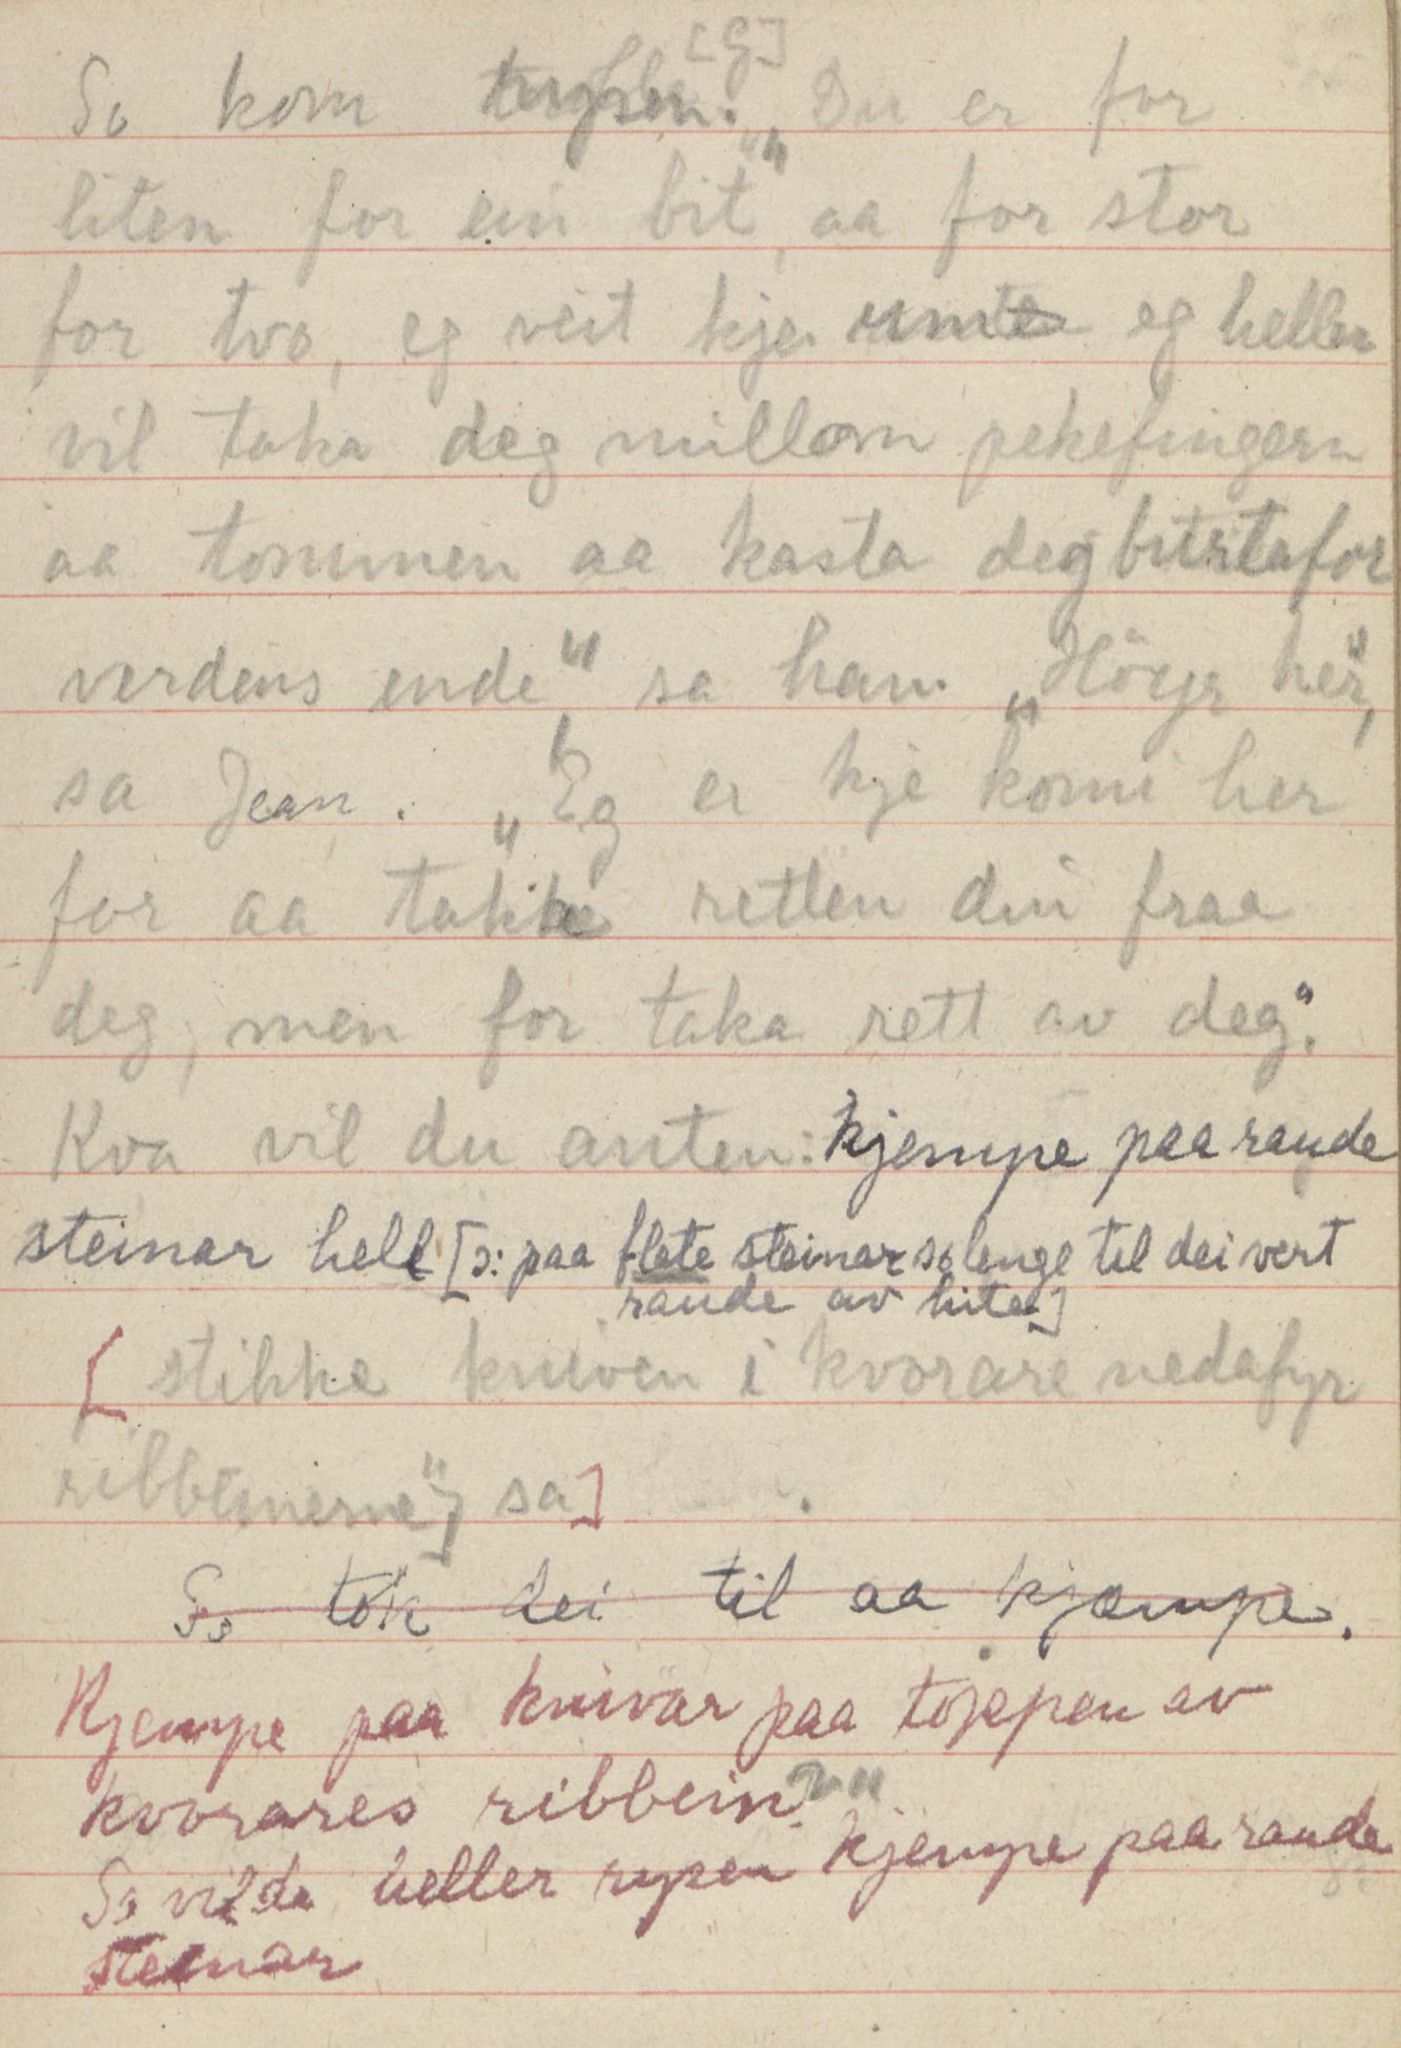 [G]
So kom rysen. „Du er for
liten for ein bit", aa for stor
for tvo, eg veit kje um eg heller
vil taka deg millom pekefingern
aa tommen aa kasta deg burtafor
verdens ende" sa han. „Höyr her",
sa Jean. „Eg er kje komi her
for aa takke retten din fraa
deg, men for taka rett av deg".
Kva vil du anten: kjempe paa raude
steinar hell [ɔ: paa flate steinar so lenge til dei vert
raude av hite]
[ stikke kniven i kvorare nedafyr
ribbeinerne"] sa]
So tok dei til aa kjæmpe.
Kjempe paa knivar paa toppen av
kvorares ribbein?"
So vilde heller rysen kjempe paa raude
steinar